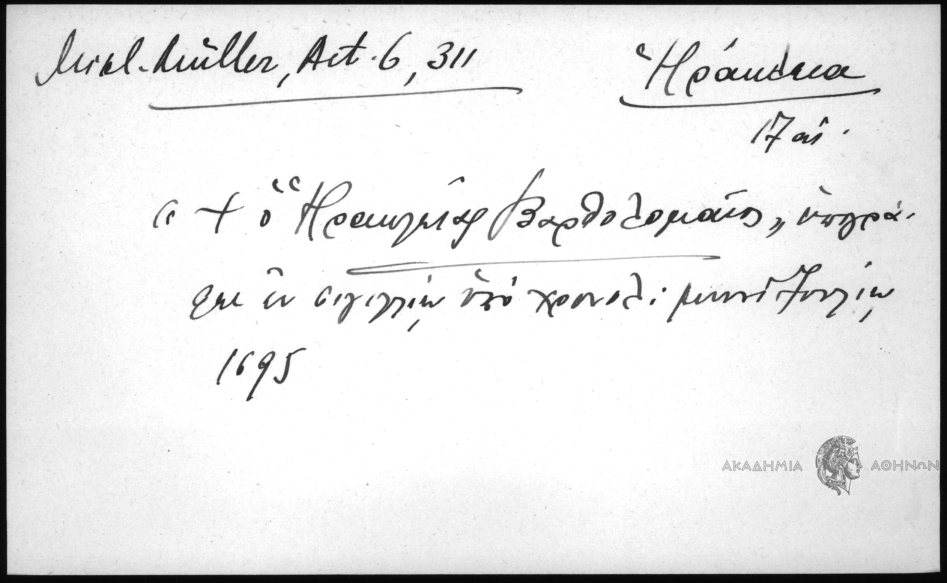 Mikl. Müller, Act. 6, 311
Ἡράκλεια
17 αἰ.
« + ὁ Ἡρακλείας Βαρθολομαῖος » ὑπογρά-
φει ἐν σιγιλλίῳ ὑπὸ χρονολ: μηνὶ Ἰουλίῳ
1695
ΑΚΑΔΗΜΙΑ ΑΘΗΝΩΝ